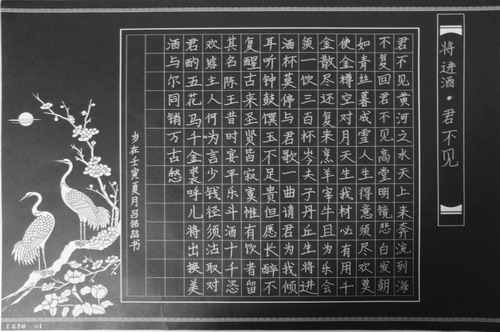 将进酒·君不见
君不见黄河之水天上来奔流到海
不复回君不见高堂明镜悲白发朝
如青丝暮成雪人生得意须尽欢莫
使金樽空对月天生我材必有用千
金散尽还复来烹羊宰牛且为乐会
须一饮三百杯岑夫子丹丘生将进
酒杯莫停与君歌一曲请君为我倾
耳听钟鼓馔玉不足贵但愿长醉不
复醒古来圣贤皆寂寞惟有饮者留
其名陈王昔时宴平乐斗酒十千恣
欢谑主人何为言少钱径须沽取对
君酌五花马千金裘呼儿将出换美
酒与尔同销万古愁
岁在壬寅夏月吕铭喆书